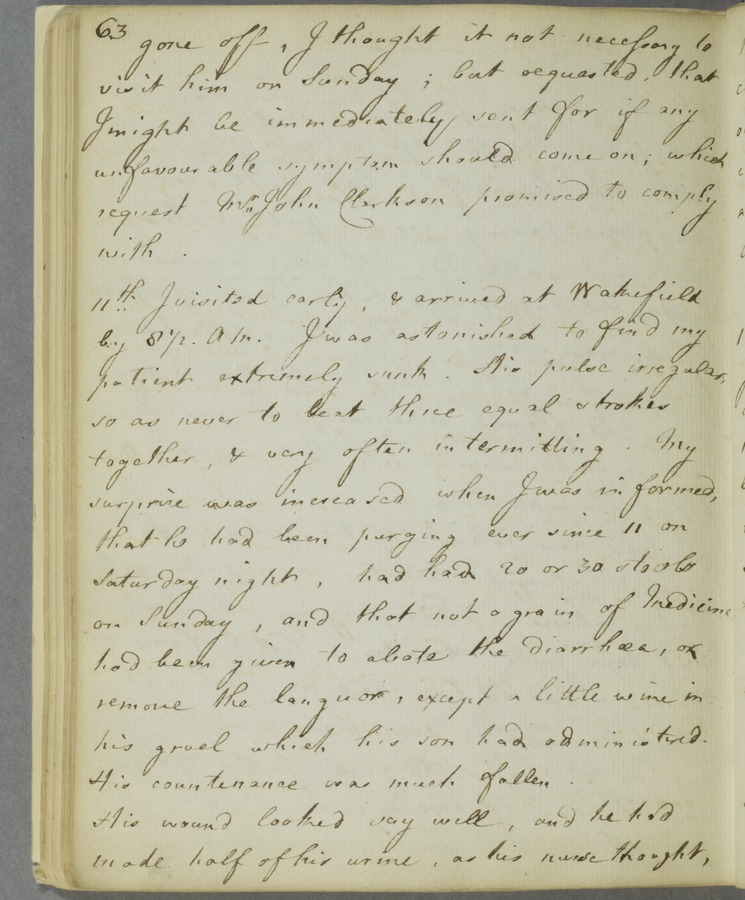 63
gone off, I thought it not necessary to
visit him on Sunday; but requested, that
I might be immediately sent for if any
unfavourable symptom should come on; which
request Mr. John Clarkson promised to comply
with.
11th I visited early, & arrived at Wakefield
by 8 1/2. A M. I was astonished to find my
patient extremely sunk. His pulse irregular,
so as never to beat three equal strokes
together, & very often intermitting. My
surprise was increased when I was informed,
that he had been purging ever since 11 on
Saturday night, had had 20 or 30 stools
on Sunday, and that not a grain of Medicine
had been given to abate the diarrhœa, or
remove the languor, except a little wine in
his gruel which his son had administred.
His countenance was much fallen.
His wound looked very well, and he had
made half of his urine, as his nurse thought,